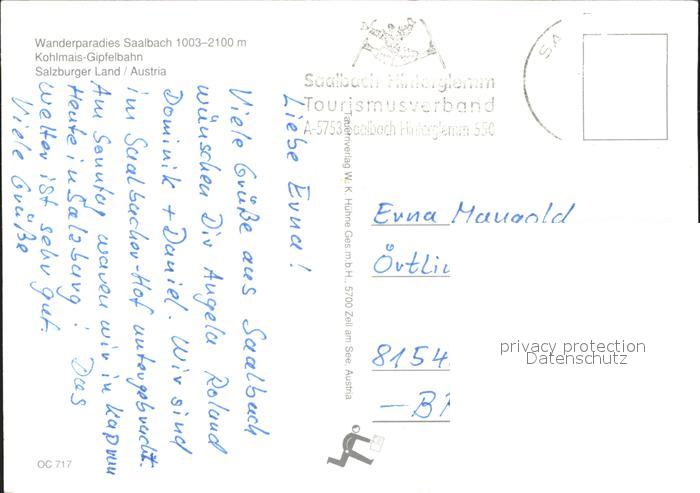 Wanderparadies Saalbach 1003–2100 m
Kohlmais-Gipfelbahn
Salzburger Land / Austria
Saalbach Hinterglemm
Tourismusverband
A-5753 Saalbach Hinterglemm 550
SA
Liebe Erna!
Viele Grüße aus Saalbach
wünschen Dir Angela Roland
Dominik + Daniel. Wir sind
im Saalbacher-Hof untergebracht.
Am Sonntag waren wir in Kaprun
Heute in Salzburg! Das
Wetter ist sehr gut.
Viele Grüße
Tauernverlag W. K. Hühne Ges.m.b.H., 5700 Zell am See, Austria
Erna Mangold
Örtli
8154
privacy protection
Datenschutz
–B
OC 717